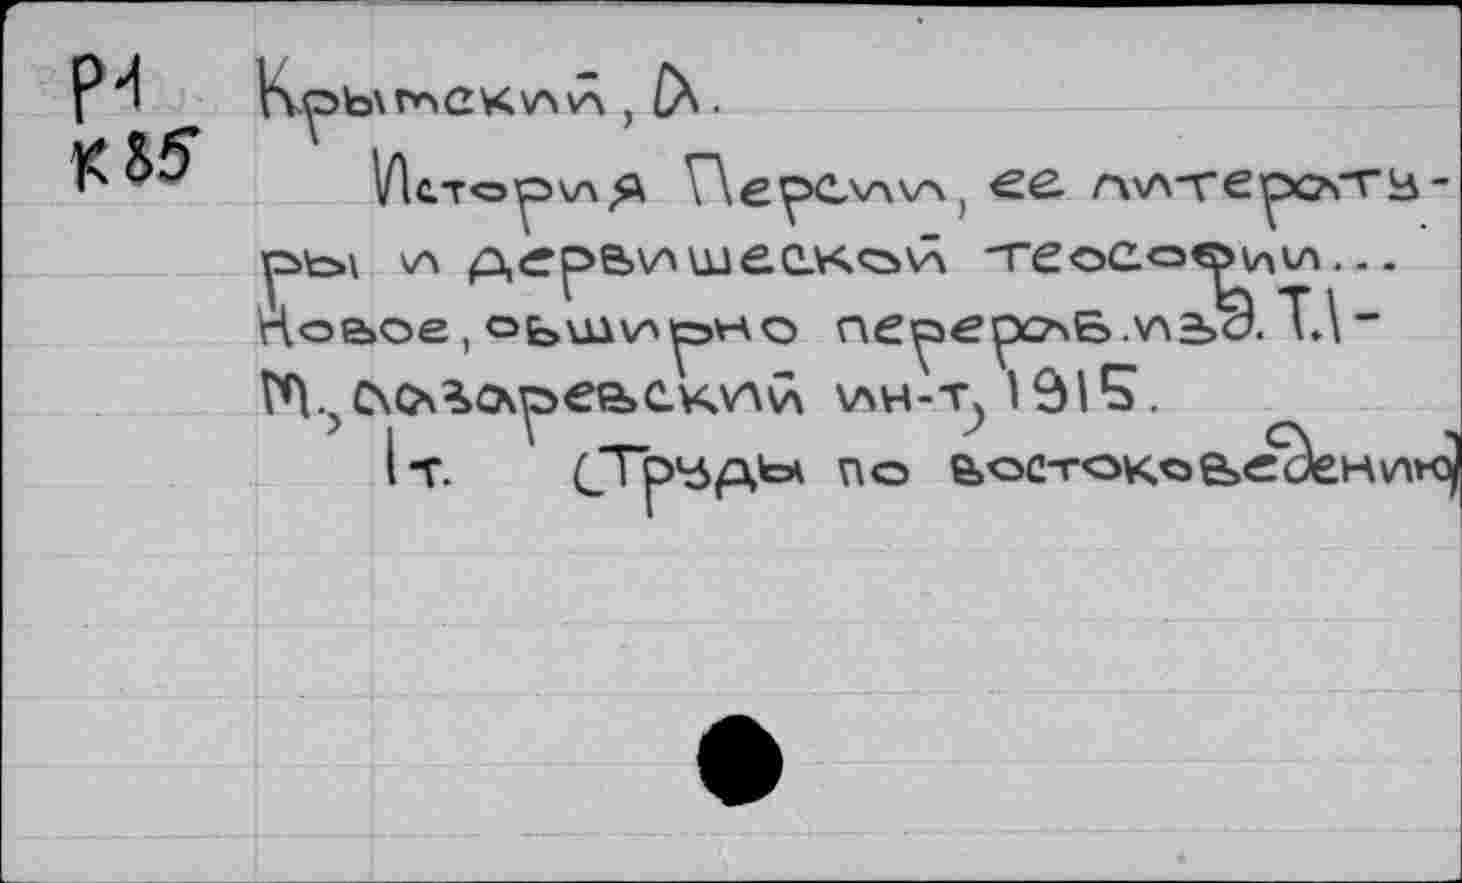 P1 Крымский, А.
K85 История Персии, ее литерату-
ры и дервишеской теософии...
Новое, обширно перераб. изд. Т.1-
М., Лазаревский ин-т, 1915.
1т. (Труды по востоковедению)